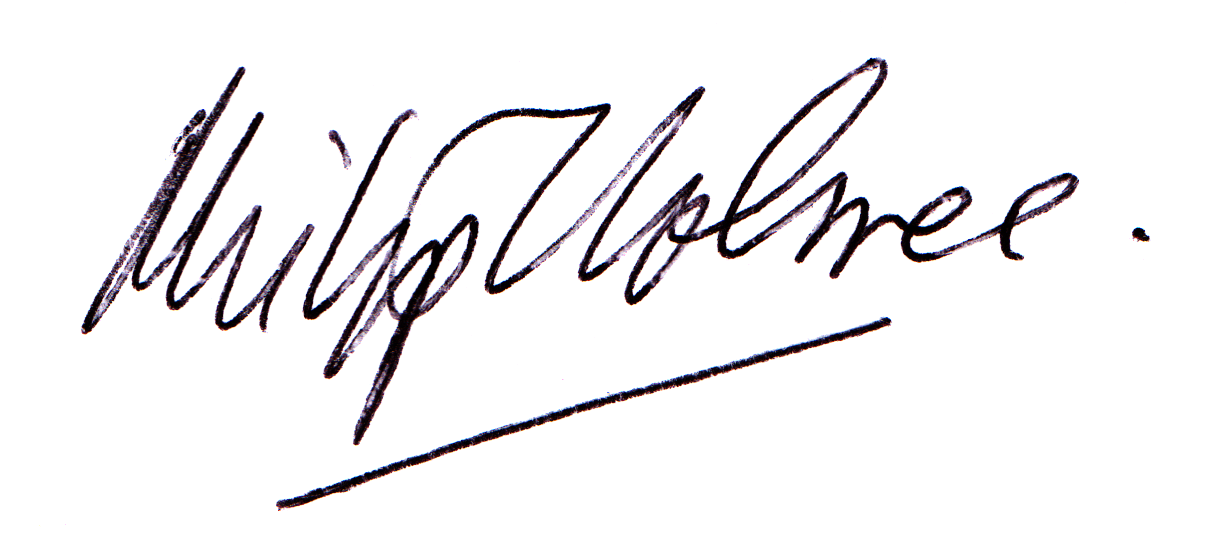 Philip Holmes.